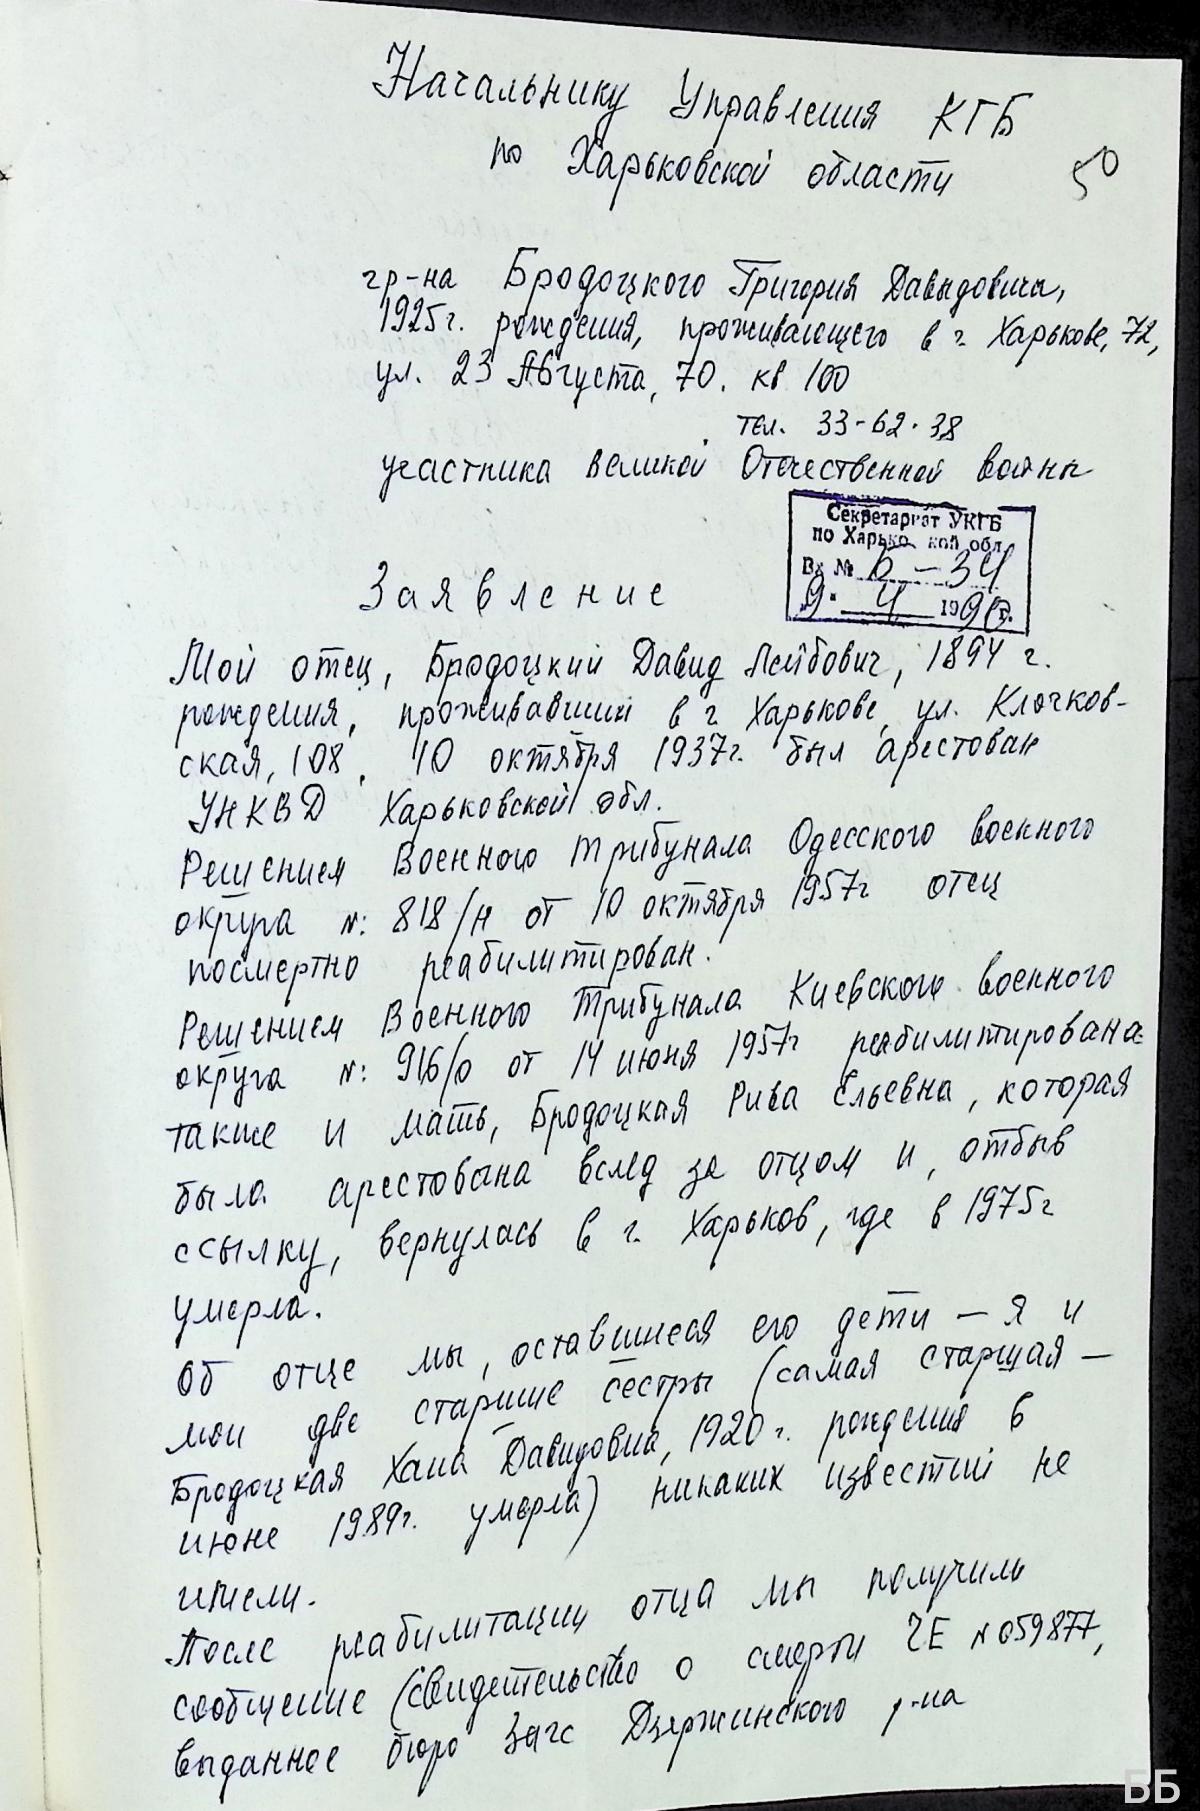 Начальнику Управления КГБ
по Харьковской области
50
гр-на Бродоцкого Григория Давыдовича,
1925г. рождения, проживающего в г. Харькове, 72,
ул. 23 Августа, 70. кв 100
тел. 33-62-38
участника Великой Отечественной войны
Секретариат УКГБ
по Харько кой обл.
Вх № Б-34
"9" 4 1990г.
Заявление
Мой отец, Бродоцкий Давид Лейбович, 1894 г.
рождения, проживавший в г Харькове, ул. Клочков-
ская, 108, 10 октября 1937г. был арестован
УНКВД Харьковской обл.
Решением Военного трибунала Одесского военного
округа №: 818/н от 10 октября 1957г отец
посмертно реабилитирован.
Решением Военного Трибунала Киевского военного
округа №: 916/0 от 14 июня 1957г реабилитирована
также и мать, Бродоцкая Рива Ельевна, которая
была арестована вслед за отцом и, отбыв
ссылку, вернулась в г. Харьков, где в 1975г
умерла.
Об отце мы, оставшиеся его дети – я и
мои две старшие сестры (самая старшая –
Бродоцкая Хана Давидовна, 1920 г. рождения в
июне 1989г. умерла) никаких известий не
имели.
После реабилитации отца мы получили
сообщение (свидетельство о смерти ГЕ №059877,
выданное бюро Загс Дзержинского р-на
ББ